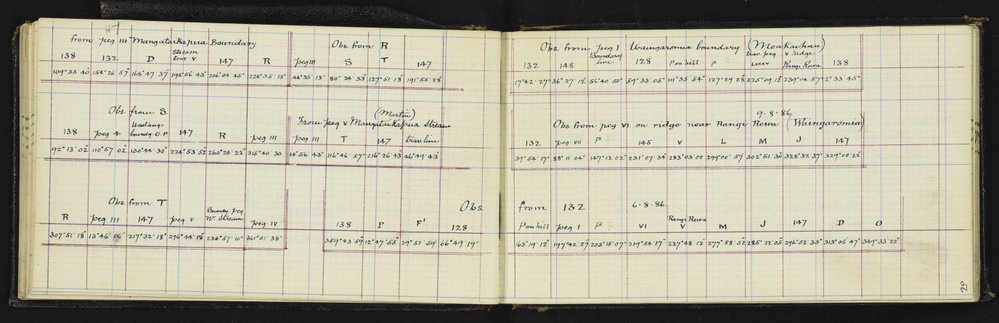 from peg III Mangataikapua Boundary
138 132 D Stream trav V 147 R
109° 33' 40" 154° 26' 57" 168° 47' 37" 206° 04' 45"
Obs. from R
peg III S T 147
44° 35' 13" 80° 24' 33" 127° 51' 18" 191° 55' 28"
Obs. from S.
138 peg 4 147 R peg III
92° 13' 02" 110° 57' 02" 130° 44' 30" 224° 53' 52" 260° 25' 22" 315° 40' 30"
From peg V Mangataikapua Stream
peg III T 147 trav line
14° 56' 43" 116° 46' 57" 216° 26' 43"
Obs from T
R peg III 147 peg V Boundy peg nr Stream peg IV
307° 51' 18" 13° 46' 06" 217° 32' 18" 296° 44' 18"
138 P P' 128
359° 43' 59" 12° 47' 55" 29° 51' 59" 66° 49' 19"
Obs. from peg I Waingaromia boundary (Moakaihau)
132 148 Boundary line 128 P on hill P 138
17° 42' 27" 36° 27' 12" 56° 40' 50" 59° 33' 05" 111° 35' 54" 127° 29' 28" 225° 09' 18" 239° 04' 57" 2° 33' 45"
9.8.86
Obs from peg VI on ridge near Rangi Rewa (Waingaromia)
132 peg VII P 145 V L M J 147
39° 54' 17" 88° 11' 04" 147° 12' 02" 231° 07' 34" 283° 03' 00" 299° 00' 57" 302° 51' 30" 328° 32' 37" 329° 00' 22"
Obs. from 132 6.8.86.
P on hill peg I P VI Rangi Rewa V M J 147 D O
163° 19' 12" 197° 42' 27" 203° 15' 07" 219° 54' 17" 227° 48' 12" 277° 58' 52" 285° 22' 05" 296° 52' 35" 313° 05' 47" 349° 33' 22"
25